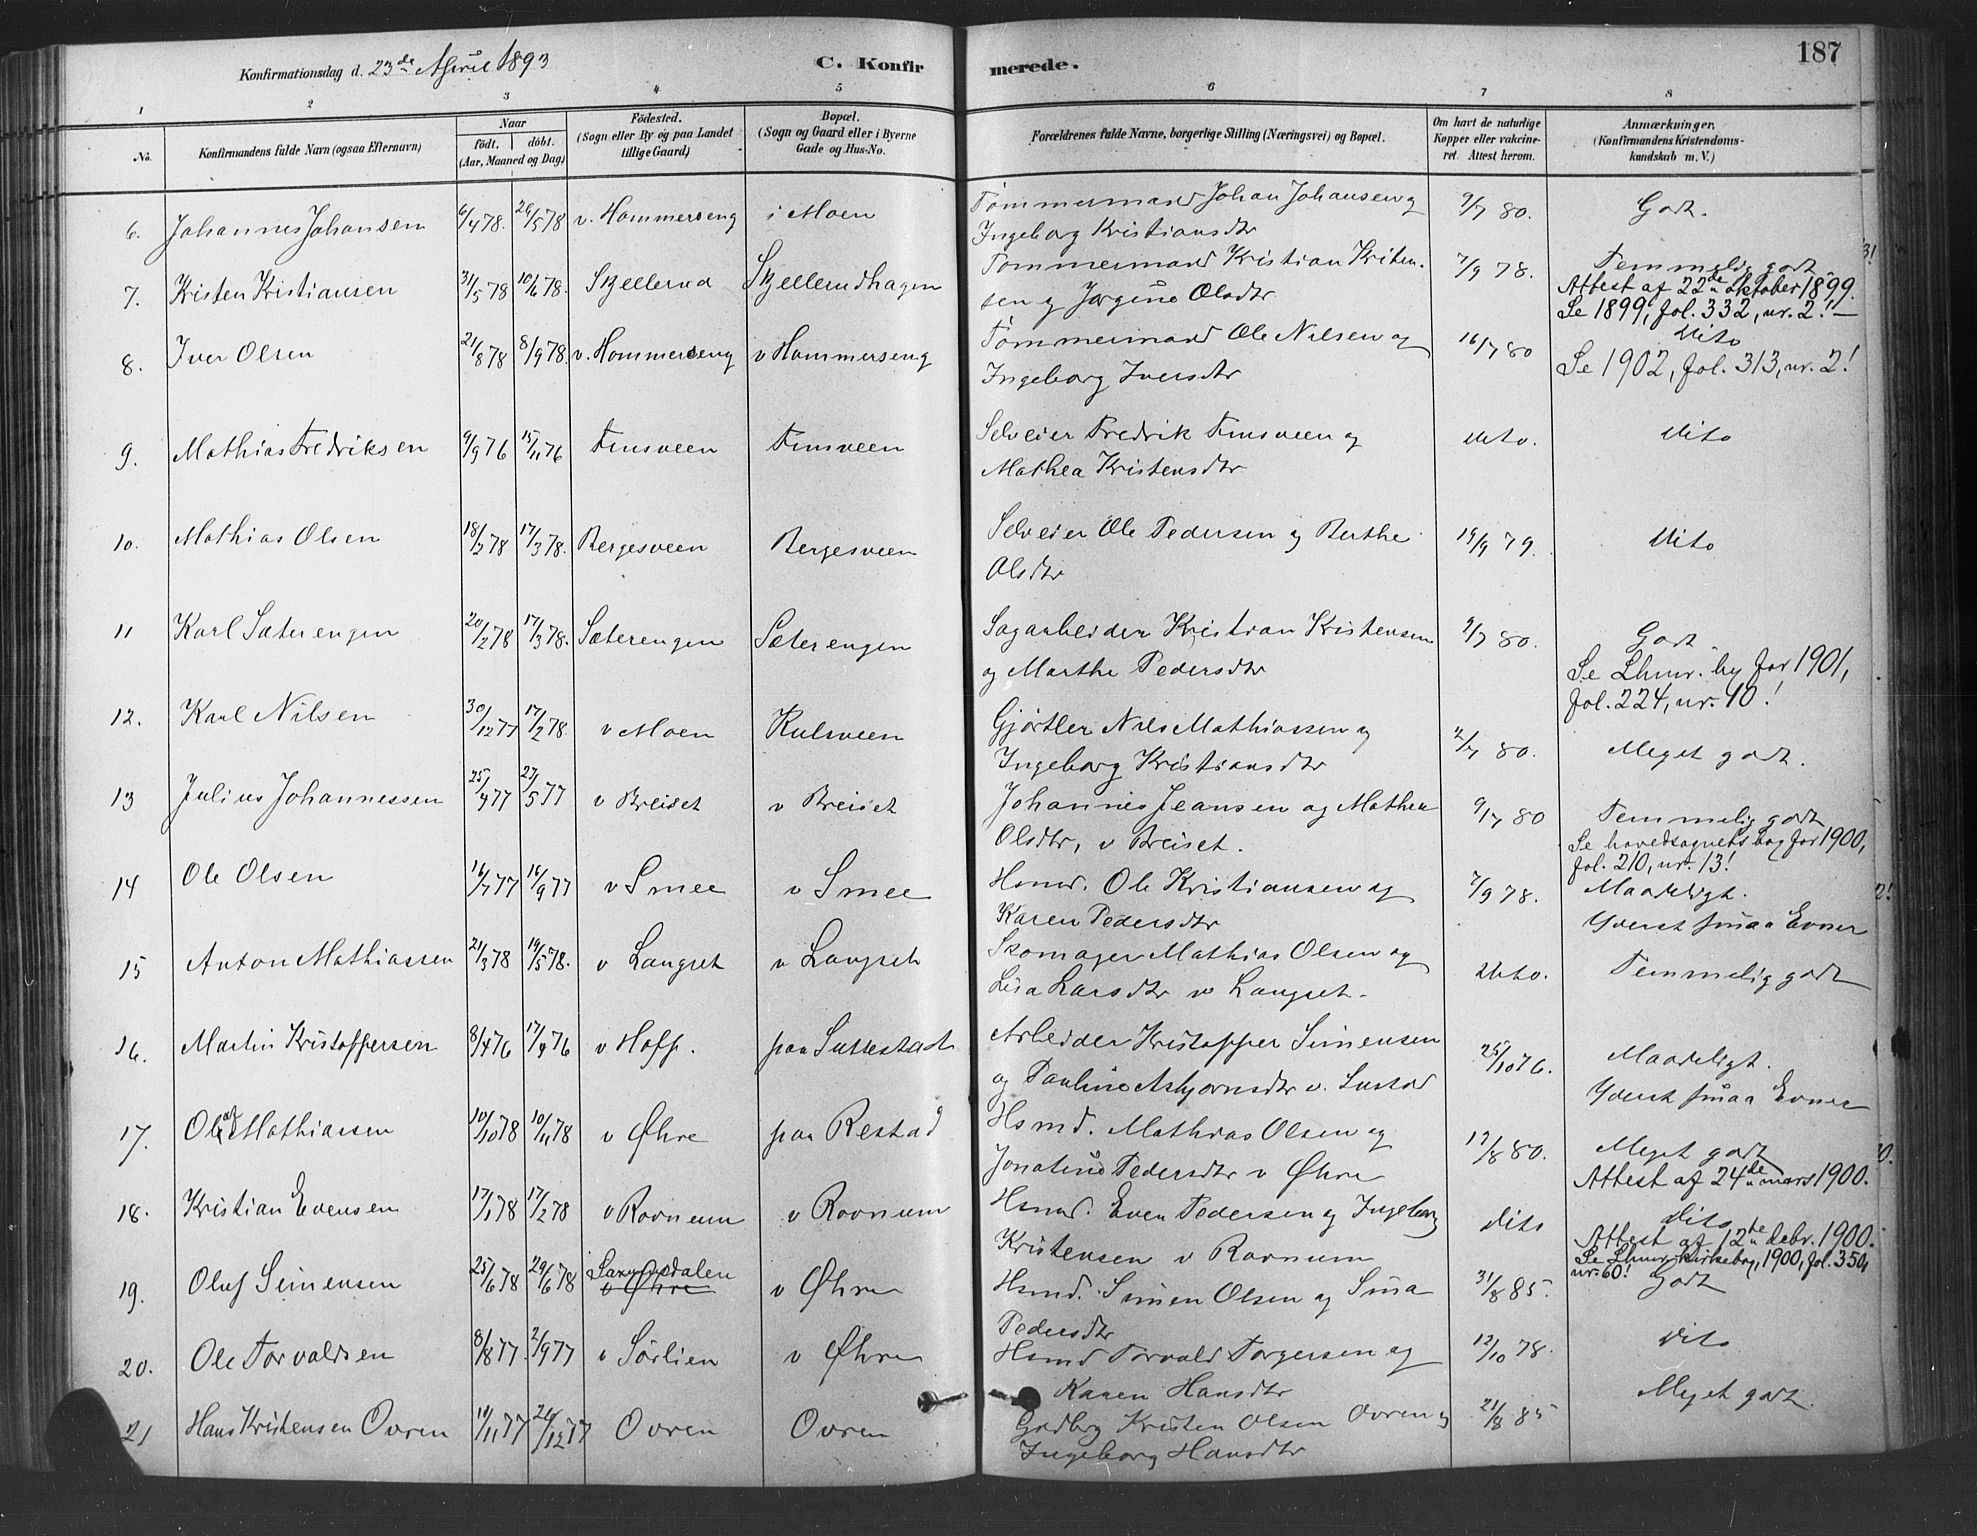 187
Konfirmationsdag d. 23de April 1893
C. Konfirmerede.
1 2 3 4 5 6 7 8
No. Konfirmandens fulde Navn (ogsaa Efternavn) Naar født. døbt. (Aar, Maaned og Dag) Fødested. (Sogn eller By og paa Landet tillige Gaard) Bopæl. (Sogn og Gaard eller i Byerne Gade og Hus-No. Forældrenes fulde Navne, borgerlige Stilling (Næringsvei) og Bopæl. Om havt de naturlige Kopper eller vakcineret. Attest herom. Anmærkninger. (Konfirmandens Kristendomskundskab m. V.)
6. Johannes Johansen 6/4 78. 26/5 78 v. Hammerseng i Moen Tømmermand Johan Johansen og 9/7 80. Godt.
Ingeborg Kristiansdtr
7. Kristen Kristiansen 31/5 78 10/6 78. Skjellerud Skjellerudhagen Tømmermand Kristian Kristen- 7/9 78. Temmelig godt
sen og Jørgine Olsdtr Attest af 22de oktober 1899.
Se 1899, fol. 332, nr. 2!
8. Iver Olsen 21/8 78 8/9 78. v. Hammerseng v Hammerseng Tømmermand Ole Nilsen og 16/7 80 Dito
Ingeborg Iversdtr Se 1902, fol. 313, nr. 2!
9. Mathias Fredriksen 9/9 76 15/11 76 Finsveen Finsveen Selveier Fredrik Finsveen og Dito. Dito
Mathea Kristensdtr
10. Mathias Olsen 18/2 78 17/3 78. Bergesveen Bergesveen Selveier Ole Pedersen og Berthe 19/9 79. Dito
Olsdtr
11 Karl Sæterengen 20/2 78 17/3 78. Sæterengen Sæterengen Sagarbeider Kristian Kristensen 9/7 80. Godt.
og Marthe Pedersdtr Se Lhmr. by for 1901,
fol. 224, nr. 10!
12. Karl Nilsen 30/12 77 17/2 78. v Moen Rulsveen Gjørtler Nils Mathiassen og 2/7 80. Meget godt.
Ingeborg Kristiansdtr
13 Julius Johannessen 25/4 77 27/5 77 v Breiset v Breiset Johannes Jeansen og Mathea 9/7 80 Temmelig godt
Olsdtr, v Breiset. Se hovedsognets bog for 1900,
fol. 210, nr. 13!
14 Ole Olsen 16/7 77 16/9 77 v Smee v Smee Hsmd. Ole Kristiansen og 7/9 78. Maadeligt.
Karen Pedersdtr Yderst smaa Evner
15 Anton Mathiassen 21/3 78 19/5 78. v Langset v Langset Skomager Mathias Olsen og Dito. Temmelig godt
Lisa Larsdtr v Langset.
16. Martin Kristoffersen 8/4 76 17/4 76 v Hoff. paa Suttestad Arbeider Kristoffer Simensen 25/10 76. Maadeligt.
og Pauline Asbjørnsdtr v. Sustad Yderst smaa Evner
17. Olaf Mathiassen 10/10 78 10/11 78 v Øhre paa Restad Hsmd. Mathias Olsen og 13/8 80. Meget godt
Jonatine Pedersdtr v Øhre Attest af 24de mars 1900.
18. Kristian Evensen 17/1 78 17/2 78 v Rovnum v Rovnum Hsmd. Even Pedersen og Ingeborg Dito Dito
Kristensen v Rovnum Attest af 12te debr. 1900.
Se Lhmr. kirkebog, 1900, fol. 350,
nr. 60!
19. Oluf Simensen 25/6 78 29/6 78 v Øhre v Øhre Hsmd. Simen Olsen og Sina 31/8 85. Godt
Pedersdtr
20. Ole Torvaldsen 8/8 77. 2/9 77 v Sørlien v Øhre Hsmd Torvald Torgersen og 12/10 78. Dito
Karen Hansdtr
21 Hans Kristensen Ovren 19/11 77 26/12 77 Ovren Ovren Grdbrg Kristen Olsen Ovren og 21/8 85 Meget godt.
Ingeborg Hansdtr